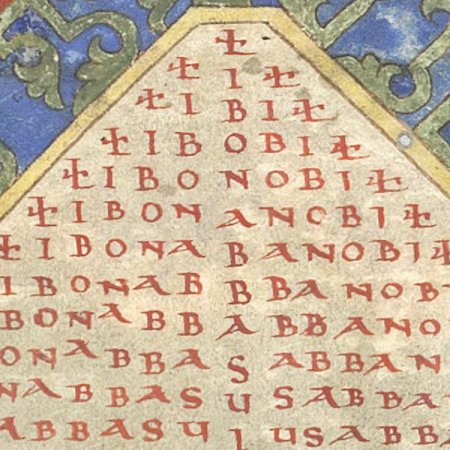 Ł
Ł I Ł
Ł I B I Ł
Ł I B O B I Ł
Ł I B O N O B I Ł
Ł I B O N A N O B I Ł
Ł I B O N A B A N O B I Ł
I B O N A B B B A N O B
B O N A B B A B B A N O
O N A B B A S A B B A N
N A B B A S U S A B B A
A B B A S U I U S A B B A